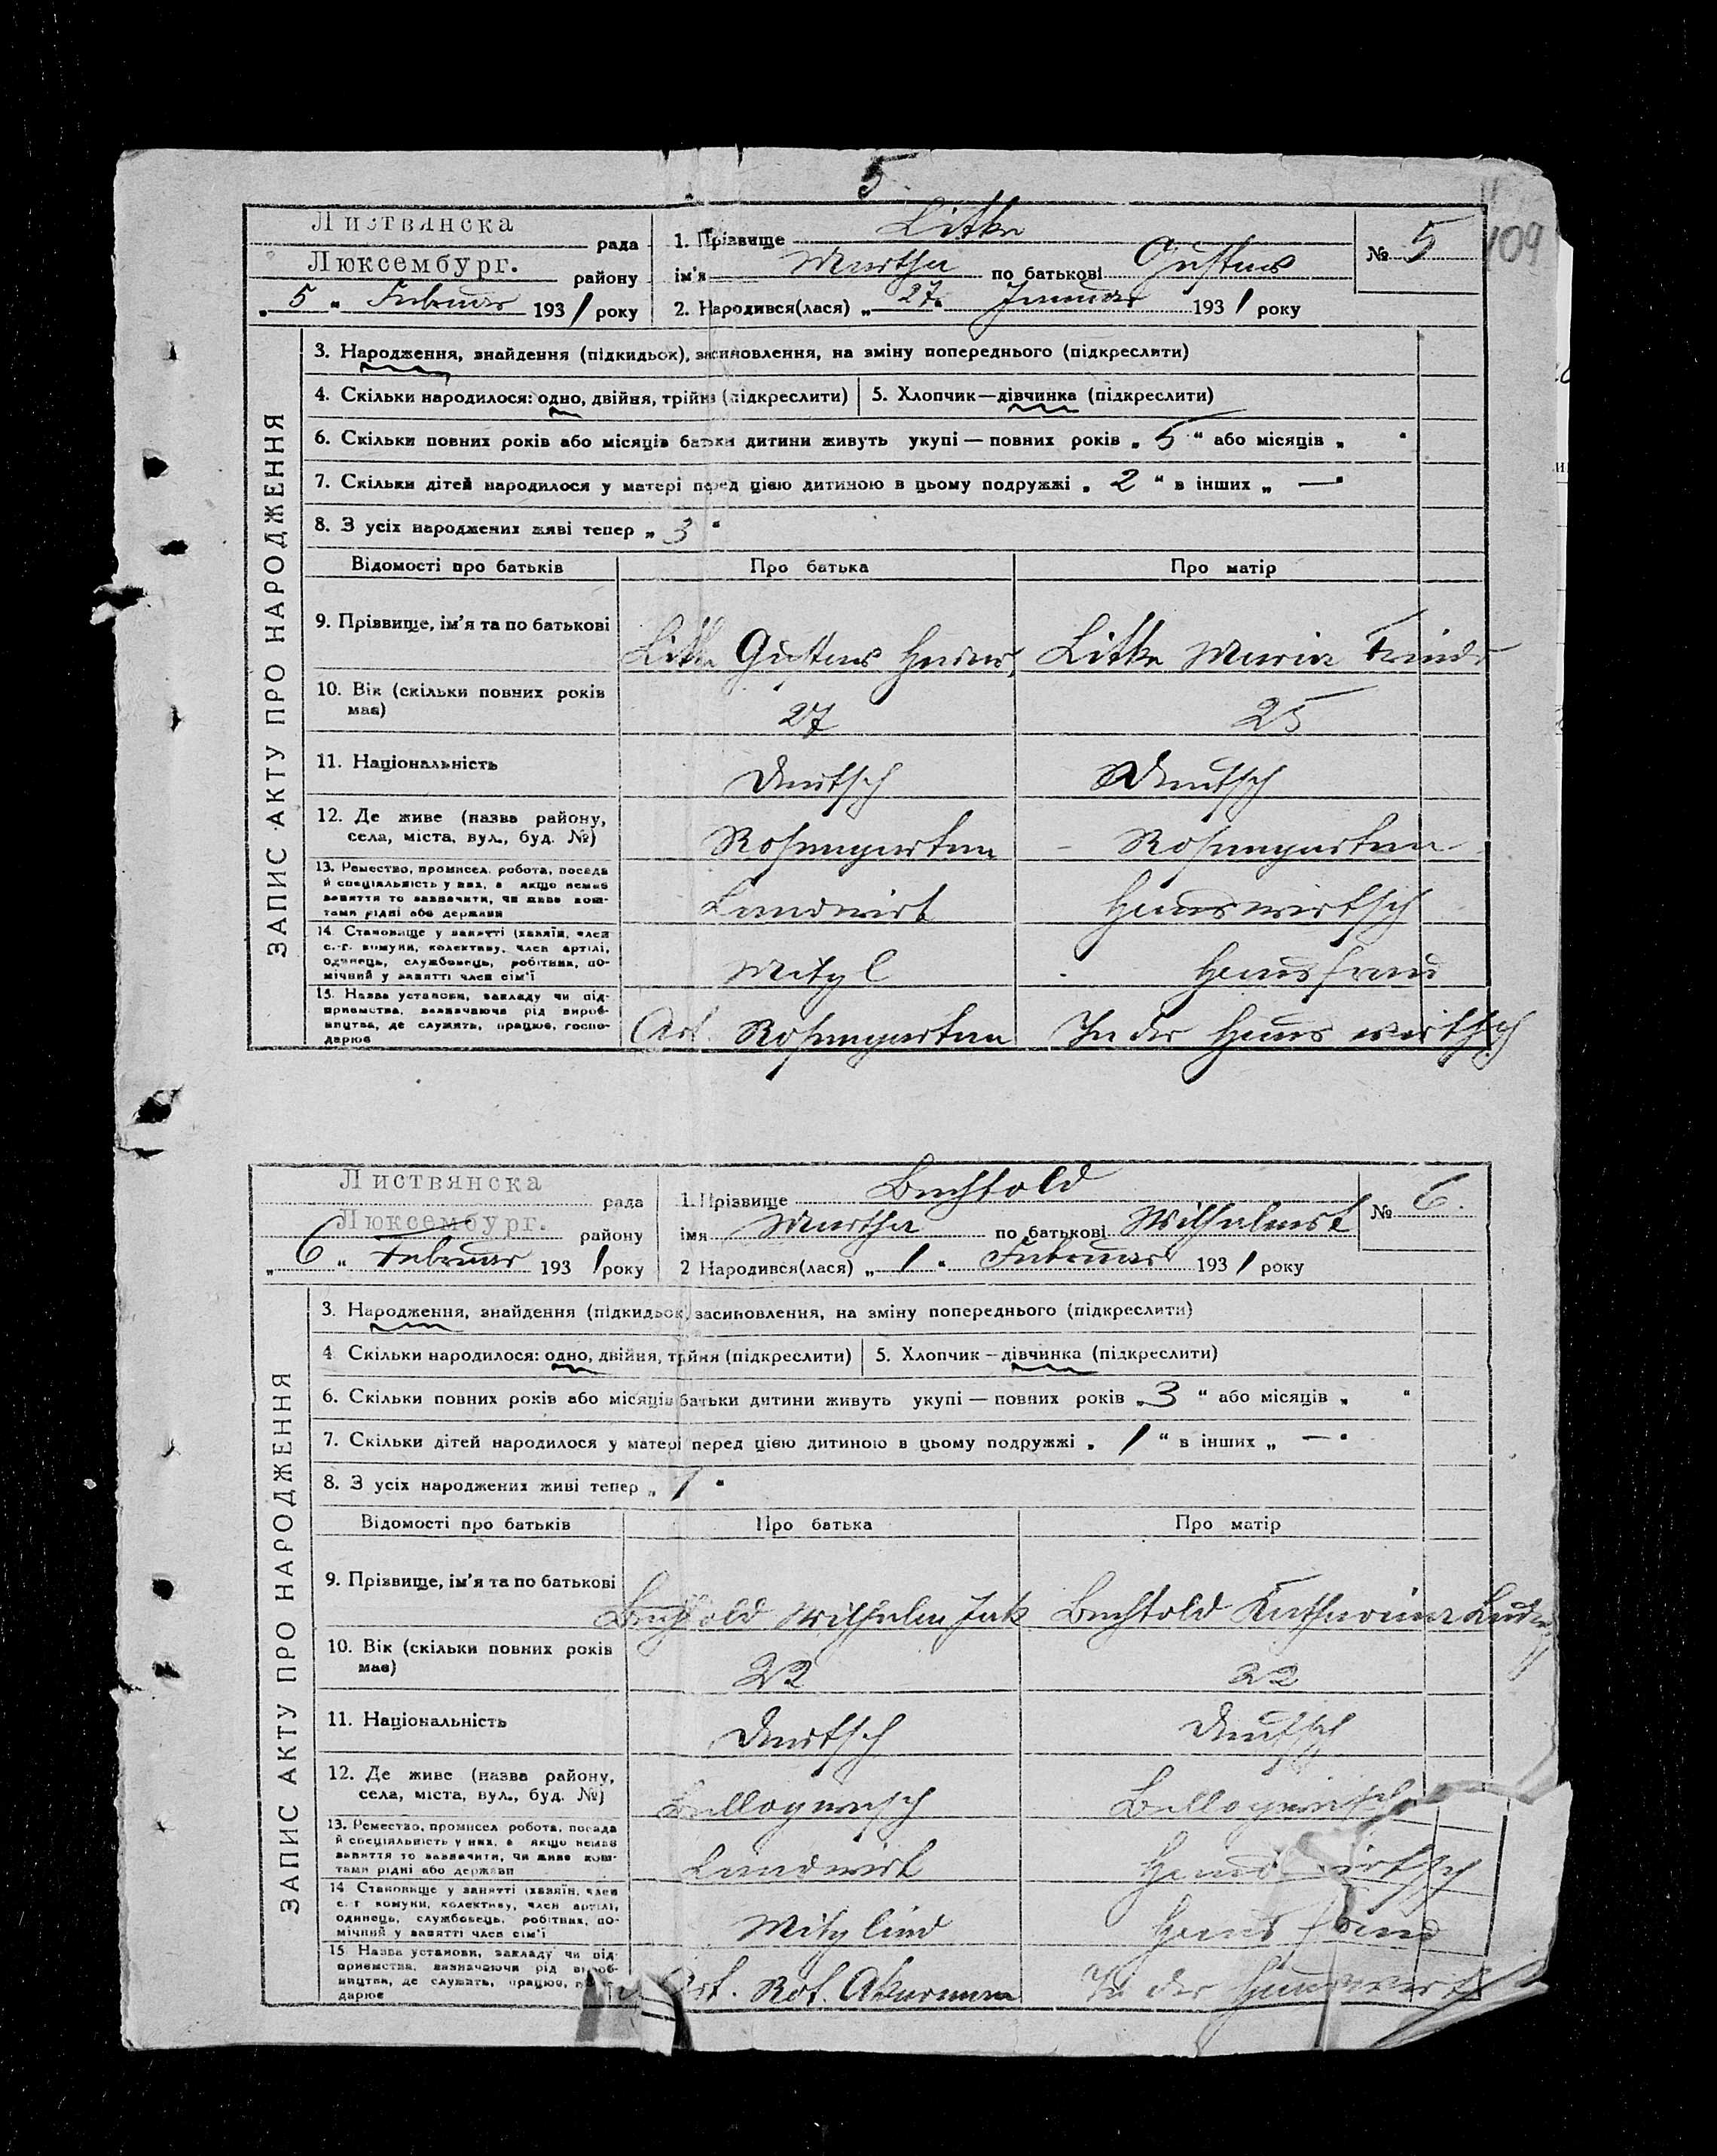 5
109
Листвянска рада
Люксембург. району
„ 5 " Februar 1931 року
1. Прізвище Litke
ім'я Martha по батькові Gustav
2. Народився(лася) „ 27. Januar 1931 року
№ 5
ЗАПИС АКТУ ПРО НАРОДЖЕННЯ
3. Народження, знайдення (підкидьок), засиновлення, на зміну попереднього (підкреслити)
4. Скільки народилося: одно, двійня, трійня (підкреслити) 5. Хлопчик—дівчинка (підкреслити)
6. Скільки повних років або місяців батьки дитини живуть укупі — повних років „ 5 " або місяців „ "
7. Скільки дітей народилося у матері перед цією дитиною в цьому подружжі „ 2 " в інших „ — "
8. З усіх народжених живі тепер „ 3 "
Відомості про батьків Про батька Про матір
9. Прізвище, ім'я та по батькові
Litke Gustav Litke Maria Friedr
10. Вік (скільки повних років має)
27 25
11. Національність
Deutsch Deutsch
12. Де живе (назва району, села, міста, вул., буд. №)
Rosengarten Rosengarten
13. Ремество, промисел, робота, посада й спеціяльність у них, а якщо немає заняття то зазначити, чи живе коштами рідні або держави
Landwirt Hauswirtsch
14. Становище у занятті (хазяїн, член с.-г. комуни, колективу, член артілі, одинець, службовець, робітник, помічний у занятті член сім'ї
Mitgl Hausfrau
15. Назва установи, закладу чи підприємства, зазначаючи рід виробництва, де служить, працює, господарює
Art. Rosengarten In der Hauswirtsch
Листвянска рада
Люксембург. району
„ 6 " Februar 1931 року
1. Прізвище Bechtold
імя Martha по батькові Wilhelmst
2 Народився(лася) „ 1 " Februar 1931 року
№ 6.
ЗАПИС АКТУ ПРО НАРОДЖЕННЯ
3. Народження, знайдення (підкидьок) засиновлення, на зміну попереднього (підкреслити)
4 Скільки народилося: одно, двійня, трійня (підкреслити) 5. Хлопчик—дівчинка (підкреслити)
6. Скільки повних років або місяців батьки дитини живуть укупі — повних років „ 3 " або місяців „ "
7. Скільки дітей народилося у матері перед цією дитиною в цьому подружжі „ 1 " в інших „ — "
8. З усіх народжених живі тепер „ 1 "
Відомості про батьків Про батька Про матір
9. Прізвище, ім'я та по батькові
Bechtold Wilhelm Jak Bechtold Katharina Ludwig
10. Вік (скільки повних років має)
22 22
11. Національність
Deutsch Deutsch
12. Де живе (назва району, села, міста, вул., буд. №)
13. Ремество, промисел робота, посада й спеціяльність у них, а якщо немає заняття то зазначити, чи живе коштами рідні або держави
Landwirt
14 Становище у занятті (хазяїн, член с. г комуни, колективу, член артілі, одинець, службовець, робітник, помічний у занятті член сім'ї
Mitglied Hausfrau
15 Назва установи, закладу чи підприємства, зазначаючи рід виробництва, де служить, працює,
дарює
Art. Rot. Akerman In der Hauswirt